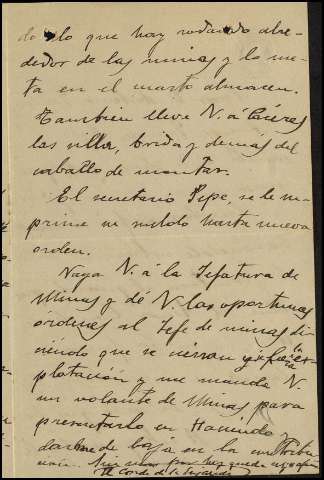 do lo que hay rodando alre-
dedor de las minas y lo me-
ta en el              almacen.
Tambien lleve V. á Cáceres
las silla, brida y demás del
caballo de montar.
El secretario Pepe, se le su-
prime su sueldo hasta nueva
orden.
Vaya V. á la Jefatura de
Minas y dé V. las oportunas
órdenes al Jefe de minas di-
ciendo que se cierran y            la ex-
plotación y me mande V.
un volante de Minas para
presentarlo en Hacienda y
darme de baja en la contribu-
cion.